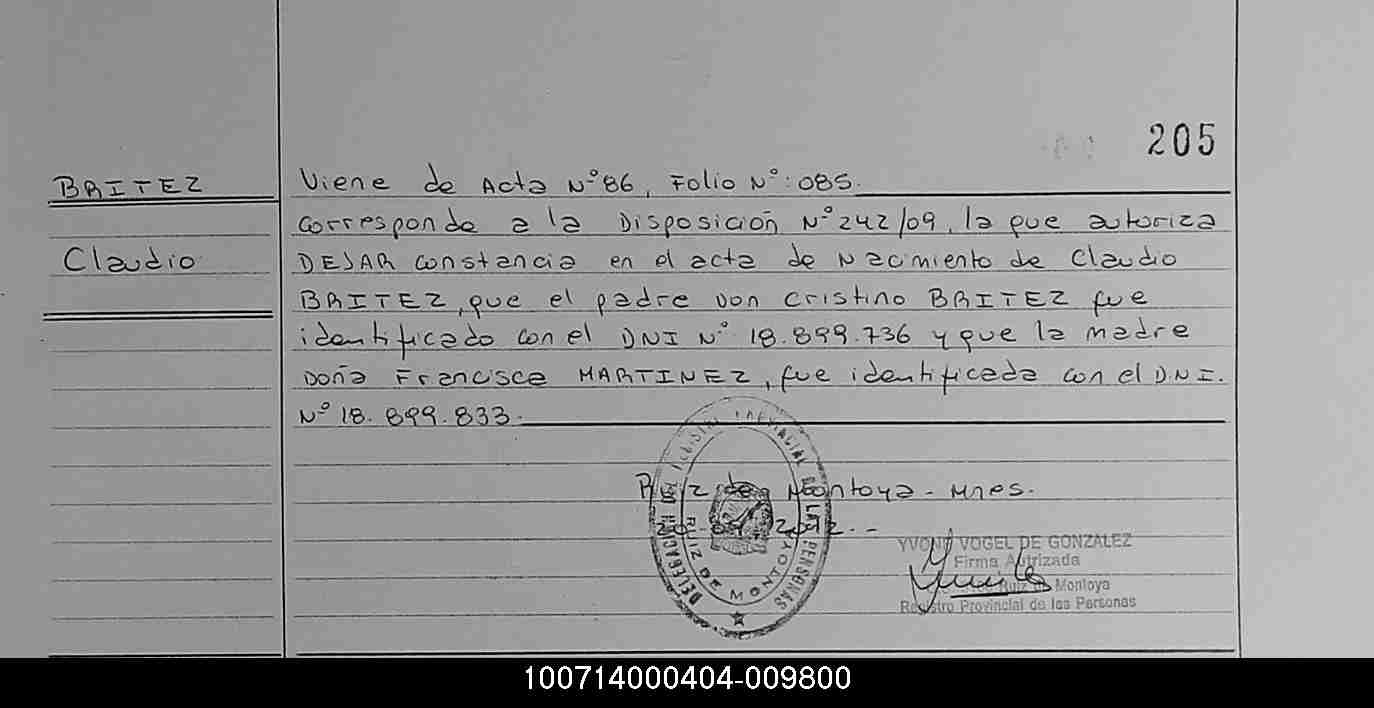 205
BRITEZ
Claudio
Viene de Acta Nº 86, Folio Nº: 085.
Corresponde a la Disposición Nº 242/09, la que autoriza
DEJAR constancia en el acta de Nacimiento de Claudio
BRITEZ, que el padre Don Cristino BRITEZ fue
identificado con el DNI Nº 18.899.736 y que la madre
Doña Francisca MARTINEZ, fue identificada con el D.N.I.
Nº 18.899.833.
Ruiz de Montoya - Mnes.
2012.-
DELEGACION RUIZ DE MONTOYA
REGISTRO PROVINCIAL DE LAS PERSONAS
YVONE VOGEL DE GONZALEZ
Firma Autrizada
Ruiz de Montoya
Registro Provincial de las Personas
100714000404-009800